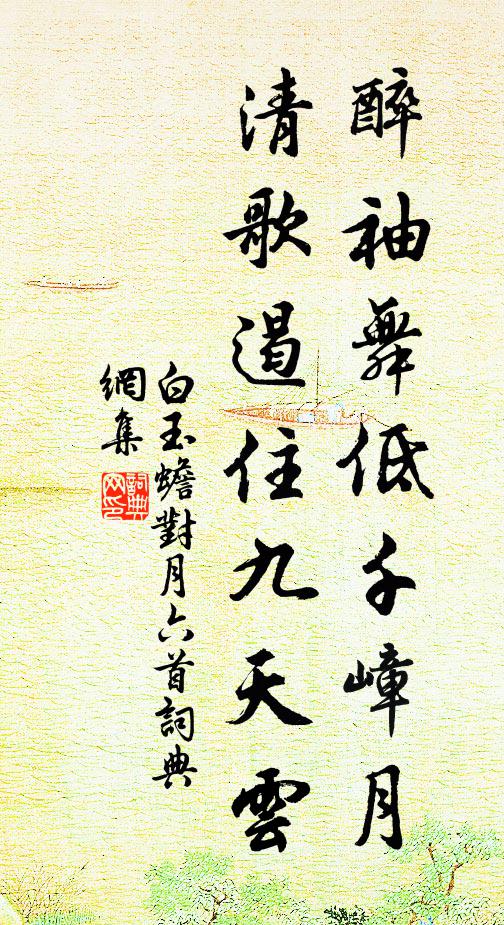 醉袖舞低千嶂月
清歌遏住九天雲
白玉蟾對月六首詞典
網集
詞典
网印